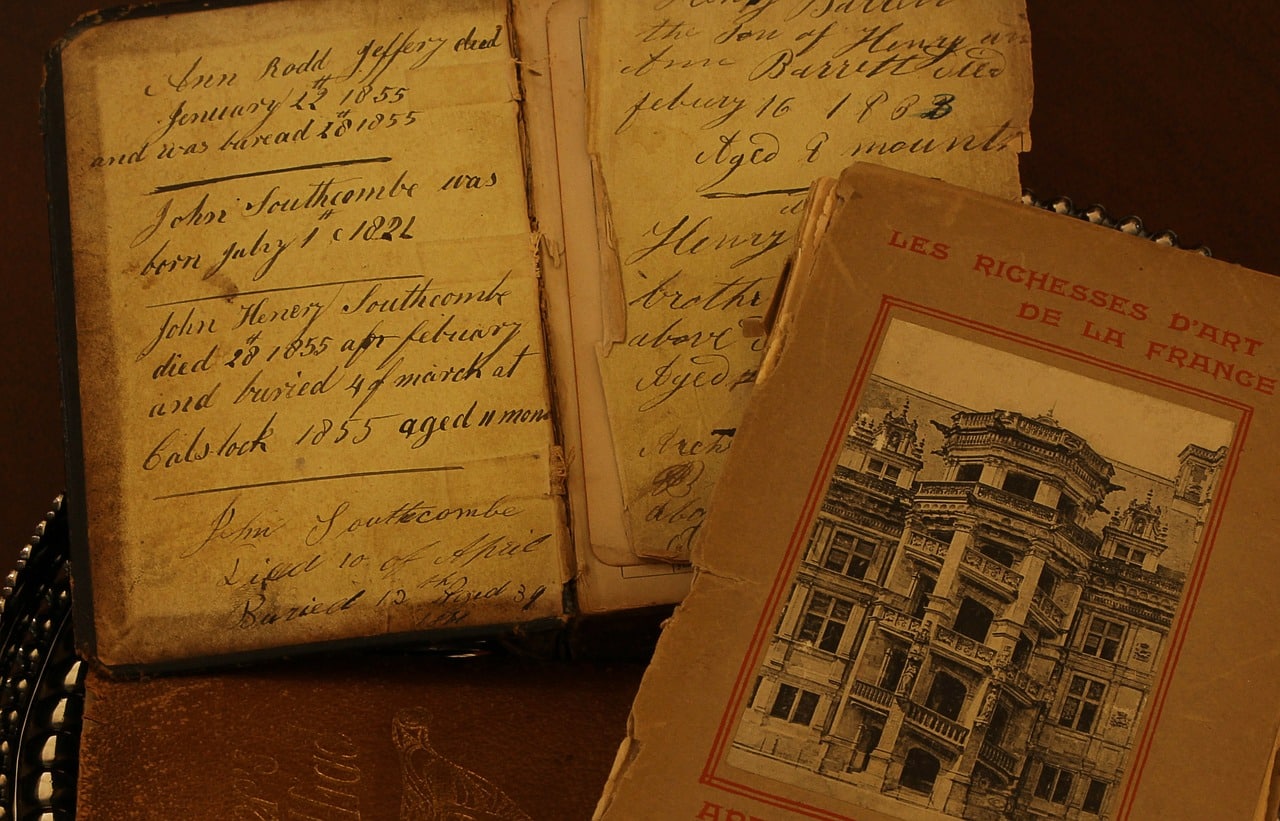 Ann Rodd Jeffery died
January 22th 1855
and was buread 28th 1855
John Southcombe was
born July 1th 1821
John Henery Southcombe
died 28th 1855 febuary
and buried 4 of march at
Calstock 1855 aged 11 mon
John Southcombe
Died 10 of April
Buried 12th Aged 39
Henry Barrett
the Son of Henry an
Ann Barrett died
febury 16 1883
Aged 8 mounts
Henry
brothe
above
Aged
Arch
abo
LES RICHESSES D'ART
DE LA FRANCE